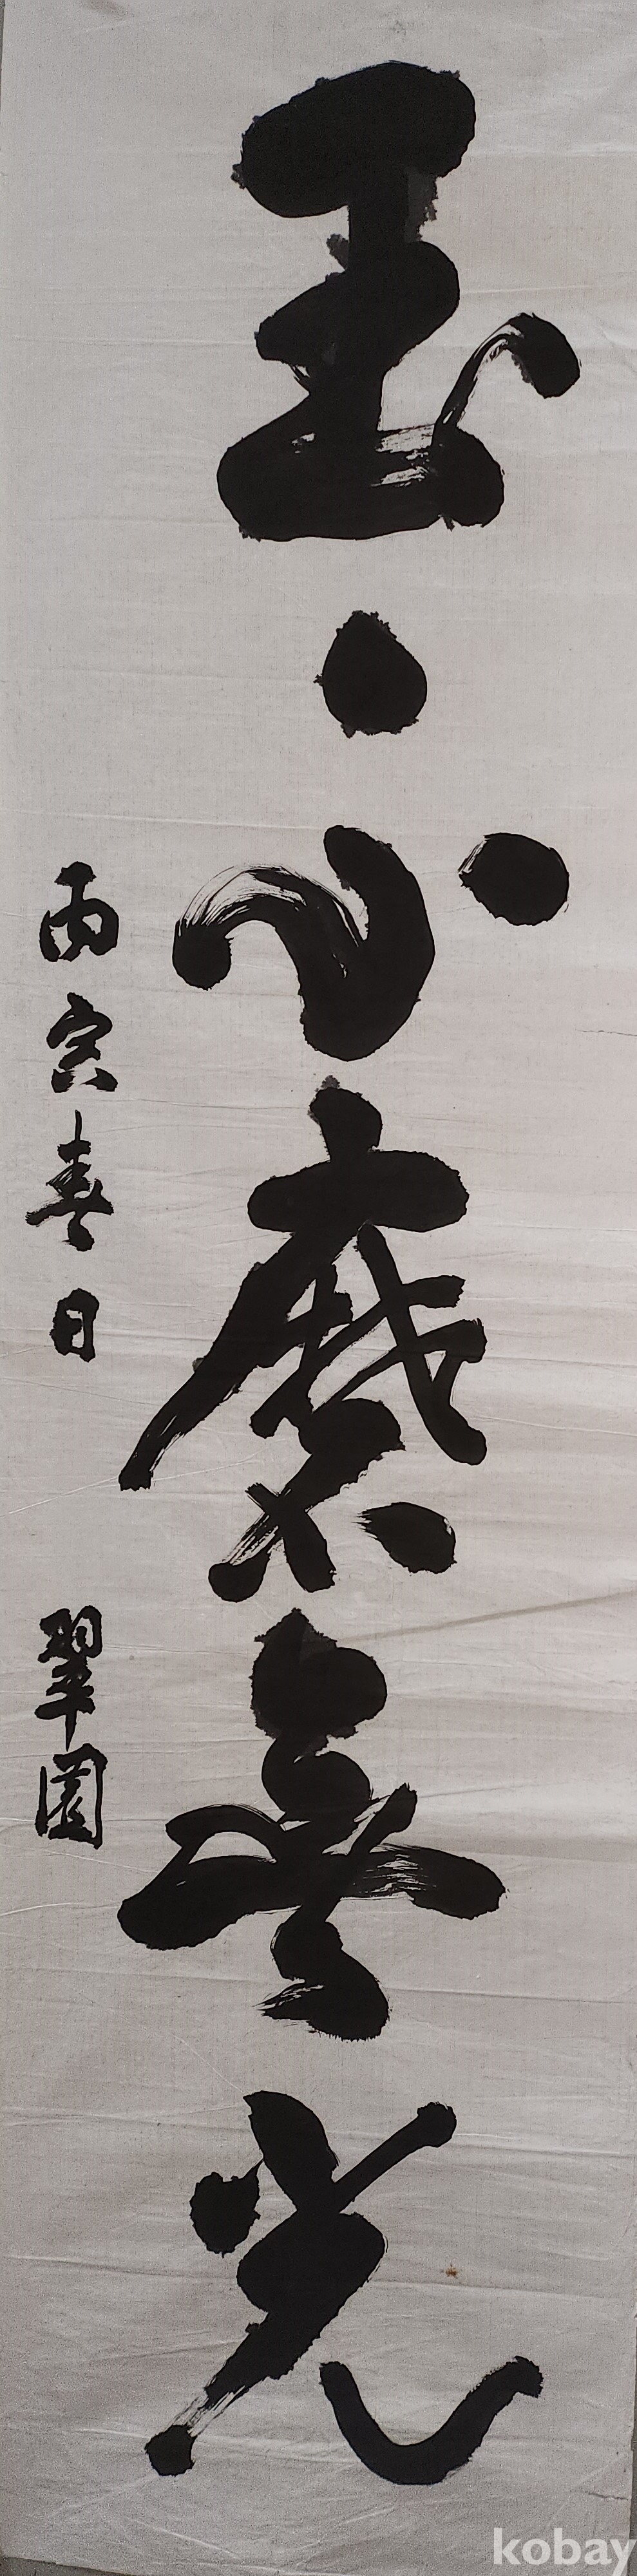 玉不磨無光
丙寅春日 翠園
kobay